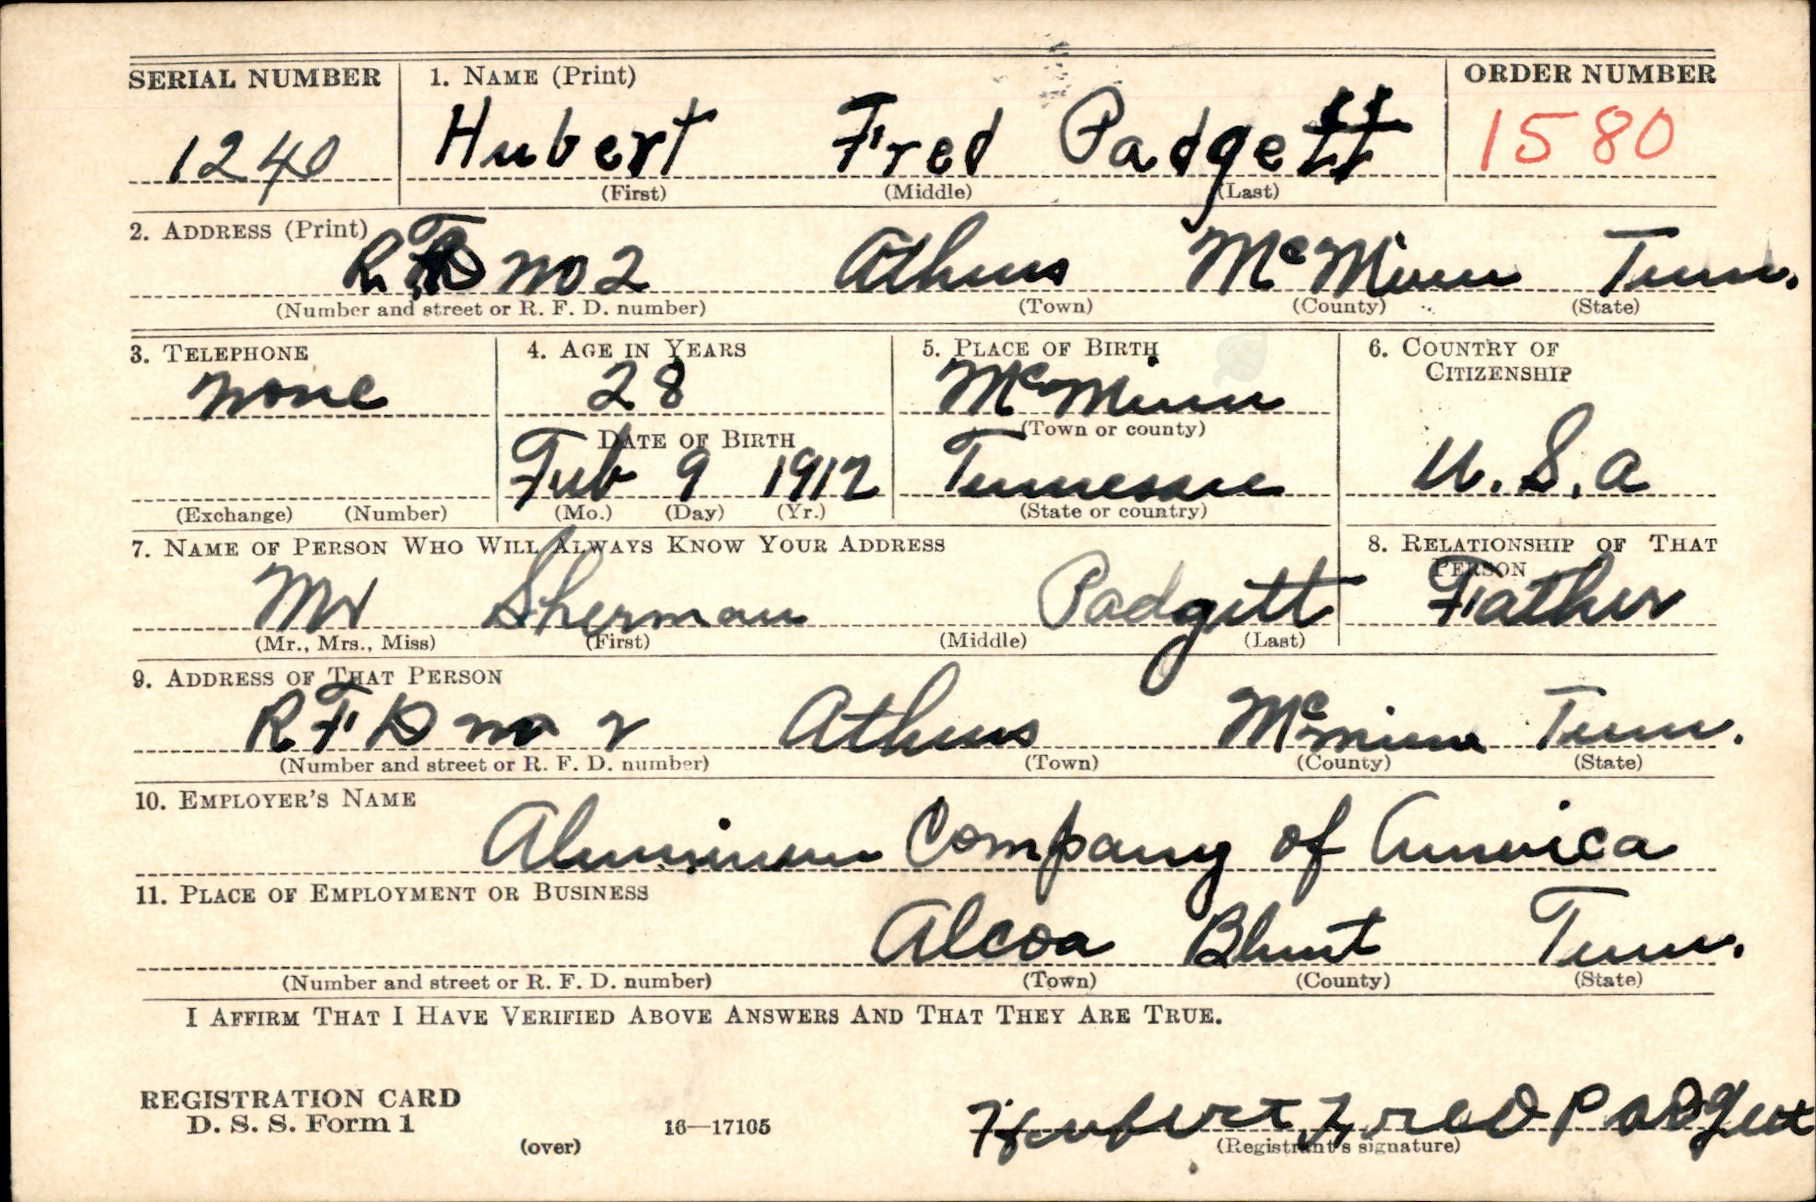 SERIAL NUMBER 1. NAME (Print) ORDER NUMBER
1240 Hubert Fred Padgett 1580
(First) (Middle) (Last)
2. ADDRESS (Print)
R.F.D no 2 Athens McMinn Tenn.
(Number and street or R. F. D. number) (Town) (County) (State)
3. TELEPHONE 4. AGE IN YEARS 5. PLACE OF BIRTH 6. COUNTRY OF CITIZENSHIP
none 28 McMinn
DATE OF BIRTH (Town or county)
Feb 9 1912 Tennessee U.S.A
(Exchange) (Number) (Mo.) (Day) (Yr.) (State or country)
7. NAME OF PERSON WHO WILL ALWAYS KNOW YOUR ADDRESS 8. RELATIONSHIP OF THAT PERSON
Mr Sherman Padgett Father
(Mr., Mrs., Miss) (First) (Middle) (Last)
9. ADDRESS OF THAT PERSON
R F D no 2 Athens McMinn Tenn.
(Number and street or R. F. D. number) (Town) (County) (State)
10. EMPLOYER'S NAME
Aluminum Company of America
11. PLACE OF EMPLOYMENT OR BUSINESS
Alcoa Blunt Tenn.
(Number and street or R. F. D. number) (Town) (County) (State)
I AFFIRM THAT I HAVE VERIFIED ABOVE ANSWERS AND THAT THEY ARE TRUE.
REGISTRATION CARD
D. S. S. Form 1
(over) 16—17105 Hubert Fred Padgett
(Registrant's signature)